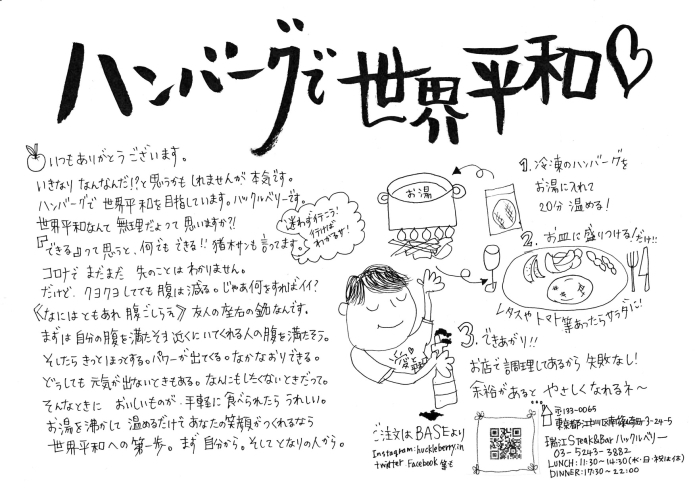 ハンバーグで世界平和♡
いつもありがとうございます。
いきなり なんなんだ!?と思うかもしれませんが、本気です。
ハンバーグで 世界平和を目指しています。ハックルベリーです。
世界平和なんて 無理だよって 思いますか?!
『できる』って思うと、何でもできる!! 猪木サンも言ってます。
迷わず行こう!
行けば
わかるさ!
コロナで まだまだ 先のことは わかりません。
だけど、クヨクヨしてても腹は減る。じゃあ何をすればイイ?
《なにはともあれ 腹ごしらえ》 友人の座右の銘なんです。
まずは 自分の腹を満たそう 近くにいてくれる人の腹を満たそう。
そしたら きっと ほっとする。パワーが出てくる。なかなおりできる。
どうしても 元気が出ないときもある。なんにもしたくないときだって。
そんなときに おいしいものが、手軽に 食べられたら うれしい。
お湯を沸かして 温めるだけで あなたの笑顔がつくれるなら
世界平和への 第一歩。まず 自分から。そして となりの人から。
お湯
1. 冷凍のハンバーグを
お湯に入れて
20分 温める!
2. お皿に盛りつける!だけ!!
レタスや トマト 等あったらサラダに!
3. できあがり!!
お店で調理してあるから 失敗なし!
余裕があると やさしくなれるネ〜
愛と平和
ご注文は BASEより
Instagram:huckleberry.in
twitter Facebook
〒133-0065
東京都江戸川区南篠崎町3-24-5
瑞江Steak&Bar ハックルベリー
03-5243-3882
LUNCH:11:30〜14:30(水・日・祝は休)
DINNER:17:30〜22:00